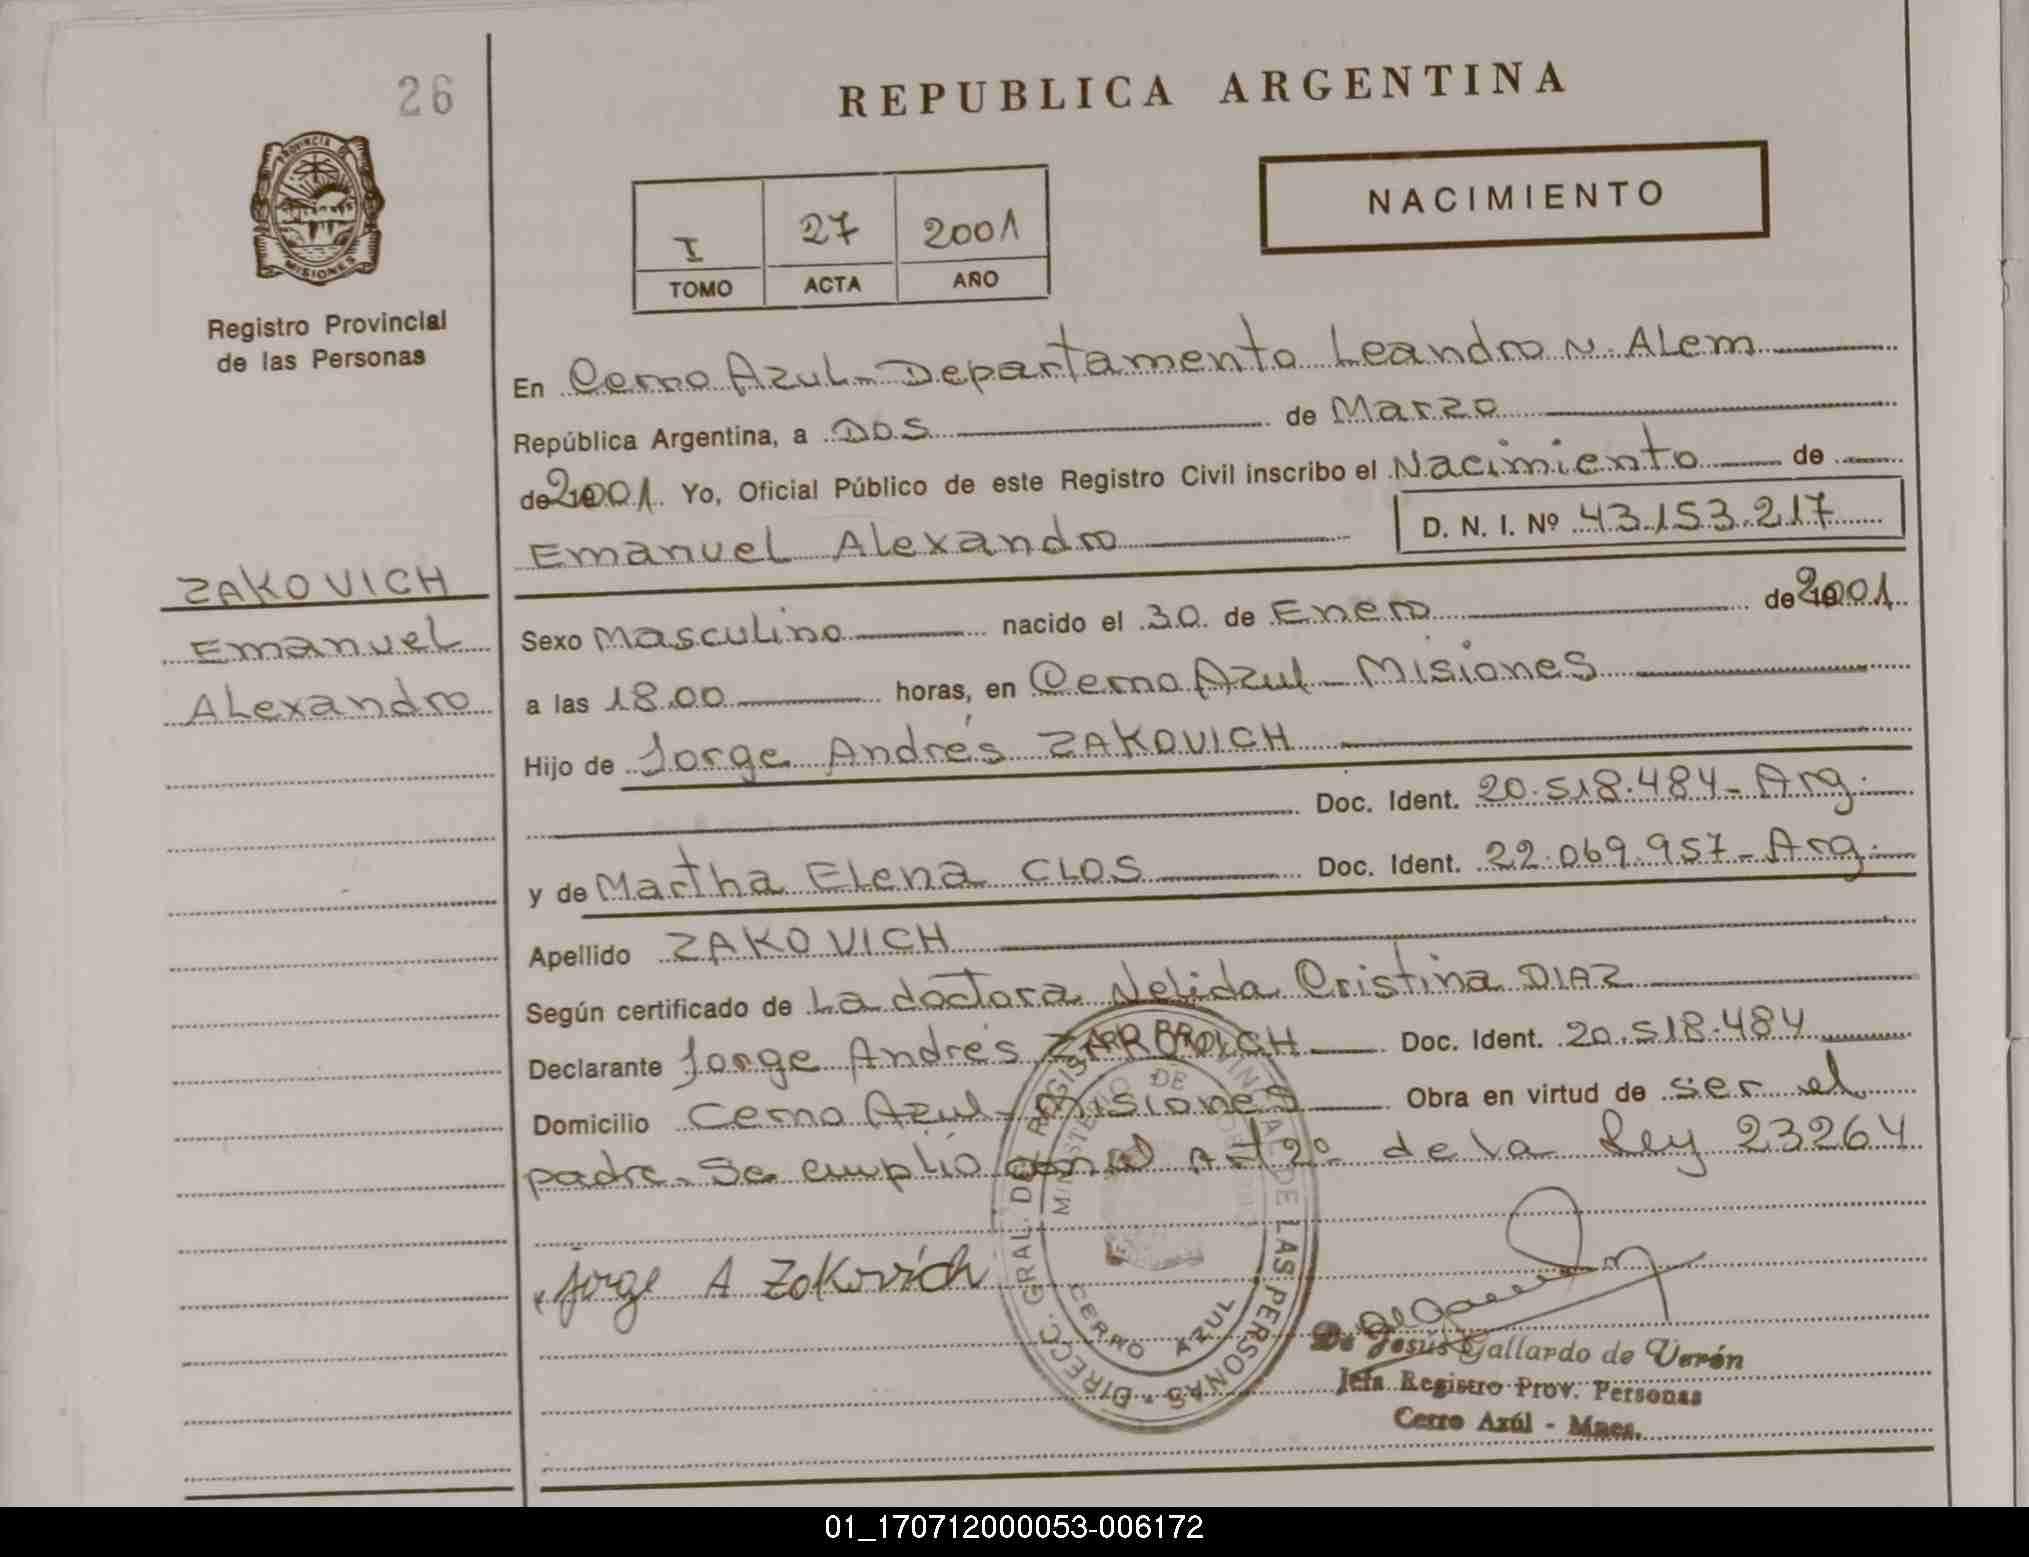 26
REPUBLICA ARGENTINA
PROVINCIA DE
MISIONES
NACIMIENTO
I 27 2001
TOMO ACTA AÑO
Registro Provincial
de las Personas
En Cerro Azul - Departamento Leandro N. Alem
República Argentina, a Dos de Marzo
de 2001. Yo, Oficial Público de este Registro Civil inscribo el Nacimiento de
Emanuel Alexandro D. N. I. Nº 43.153.217
ZAKOVICH
Emanuel
Alexandro
Sexo Masculino nacido el 30 de Enero de 2001
a las 18.00 horas, en Cerro Azul - Misiones
Hijo de Jorge Andrés ZAKOVICH
Doc. Ident. 20.518.484 - Arg.
y de Martha Elena CLOS Doc. Ident. 22.069.957 - Arg.
Apellido ZAKOVICH
Según certificado de La doctora Nelida Cristina DIAZ
Declarante Jorge Andrés ZAKOVICH Doc. Ident. 20.518.484
Domicilio Cerro Azul - Misiones Obra en virtud de ser el
padre. Se cumplió con el Art 2º de la Ley 23264
Jorge A Zakovich
DIRECC. GRAL. DEL REGISTRO PROVINCIAL DE LAS PERSONAS
MINISTERIO DE
CERRO AZUL
De Jesús Gallardo de Verón
Jefa Registro Prov. Personas
Cerro Azúl - Mnes.
01_170712000053-006172